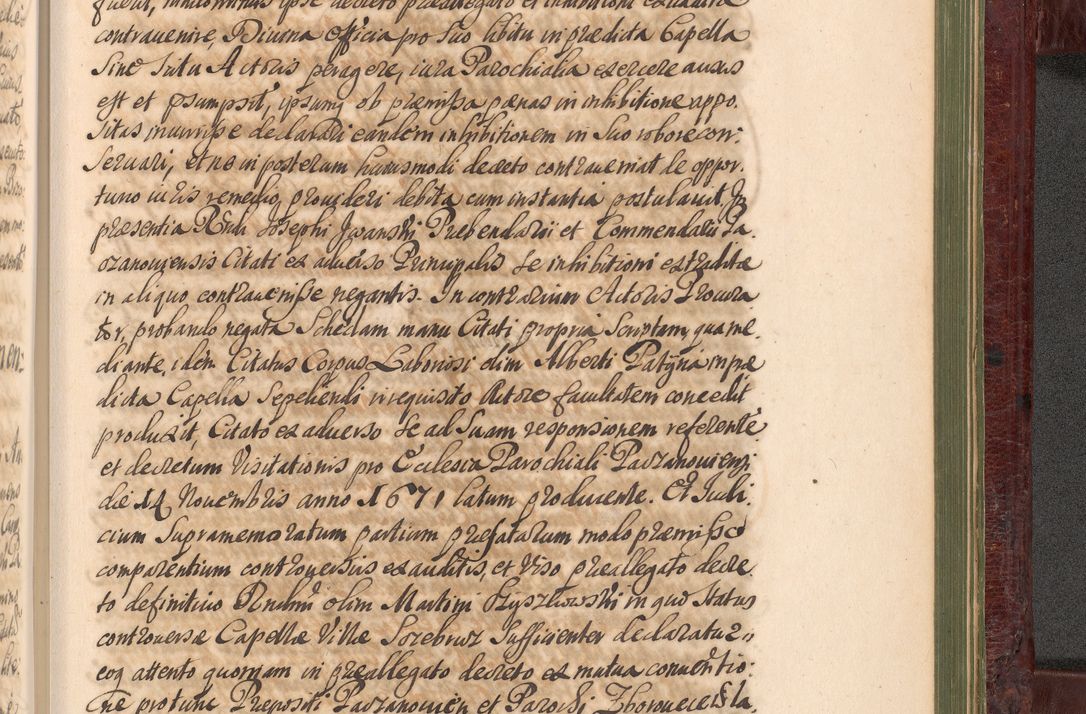 fuerit, nihilominus ipse decreto præallegato et inhibitioni
contrauenire, Diuina officia pro suo libitu in prædicta Capella
Sine Scitu Actoris peragere, iura Parochialia exercere ausus
est et præsumpsit, ipsum ob præmissa pænas in inhibitione appo.
sitas incurrisse declarari eandem inhibitionem in Suo robore con:
Seruari, et ne in posterum huiusmodi decreto contraueniat de oppor:
tuno iuris remedio, prouideri debita cum instantia postulauit, In
præsentia Rndi Josephi Jwanski Præbendarii et Commendarii Pa.
czanouiensis Citati ex aduerso Principalis se inhibitioni extraditæ
in aliquo contrauenisse negantis. In contrarium Actoris Procura
tor, probando negata Schedam manu Citati propria Scriptam, qua me
diante, idem Citatus Corpus Laboriosi olim Alberti Patyna in præ
dicta Capella Sepeliendi irrequisito Actore facultatem concedit
produxit, Citato ex aduerso se ad Suam responsionem referente
et decretum Visitationis pro Ecclesia Parochiali Paczanouiensi
die 14 Nouembris anno 1671 latum producente. Et Judi:
cium Supramemoratum partium præfatarum modo præmisso
comparentium controuersiis exauditis, et Viso præallegato decre.
to definitiuo Rndmi olim Martini Oyszkowski in quo Status
controuersiæ Capellæ Villæ Sufficienter declaratur,,
eoq attento quoniam in præallegato decreto ex mutua conuentio:
ne pro tunc Præpositi Paczanouien et Parochi Zborouecensis la.